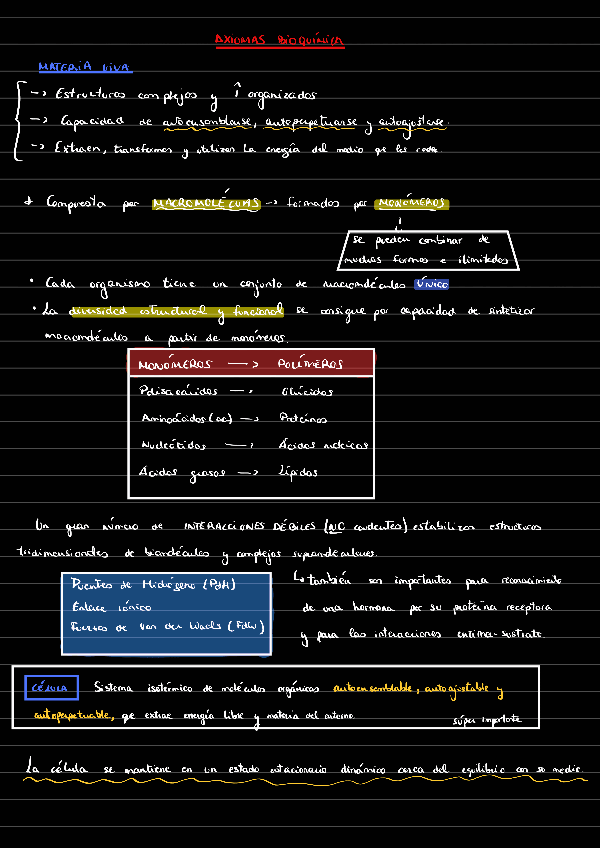 AXIOMAS BIOQUÍMICA
MATERIA VIVA
-> Estructuras complejas y ↑ organizadas
-> Capacidad de autoensamblarse, autoperpetuarse y autoajustarse.
-> Extraen, transforman y utilizan la energía del medio que les rodea.
* Compuesta por MACROMOLÉCULAS -> formados por MONÓMEROS
se pueden combinar de
muchas formas e ilimitadas
• Cada organismo tiene un conjunto de macromoléculas ÚNICO
• La diversidad estructural y funcional se consigue por capacidad de sintetizar
macromoléculas a partir de monómeros.
MONÓMEROS -> POLÍMEROS
Polisacáridos -> Glúcidos
Aminoácidos (aa) -> Proteínas
Nucleótidos -> Ácidos nucleicos
Ácidos grasos -> Lípidos
Un gran número de INTERACCIONES DÉBILES (NC covalentes) estabilizan estructuras
tridimensionales de biomoléculas y complejos supramoleculares.
Puentes de Hidrógeno (PdH)
Enlace iónico
Fuerzas de Van der Waals (FdW)
↳ también son importantes para reconocimiento
de una hormona por su proteína receptora
y para las interacciones enzima-sustrato.
CÉLULA Sistema isotérmico de moléculas orgánicas autoensamblable, autoajustable y
autoperpetuable, que extrae energía libre y materia del entorno.
súper importante
La célula se mantiene en un estado estacionario dinámico cerca del equilibrio con su medio.